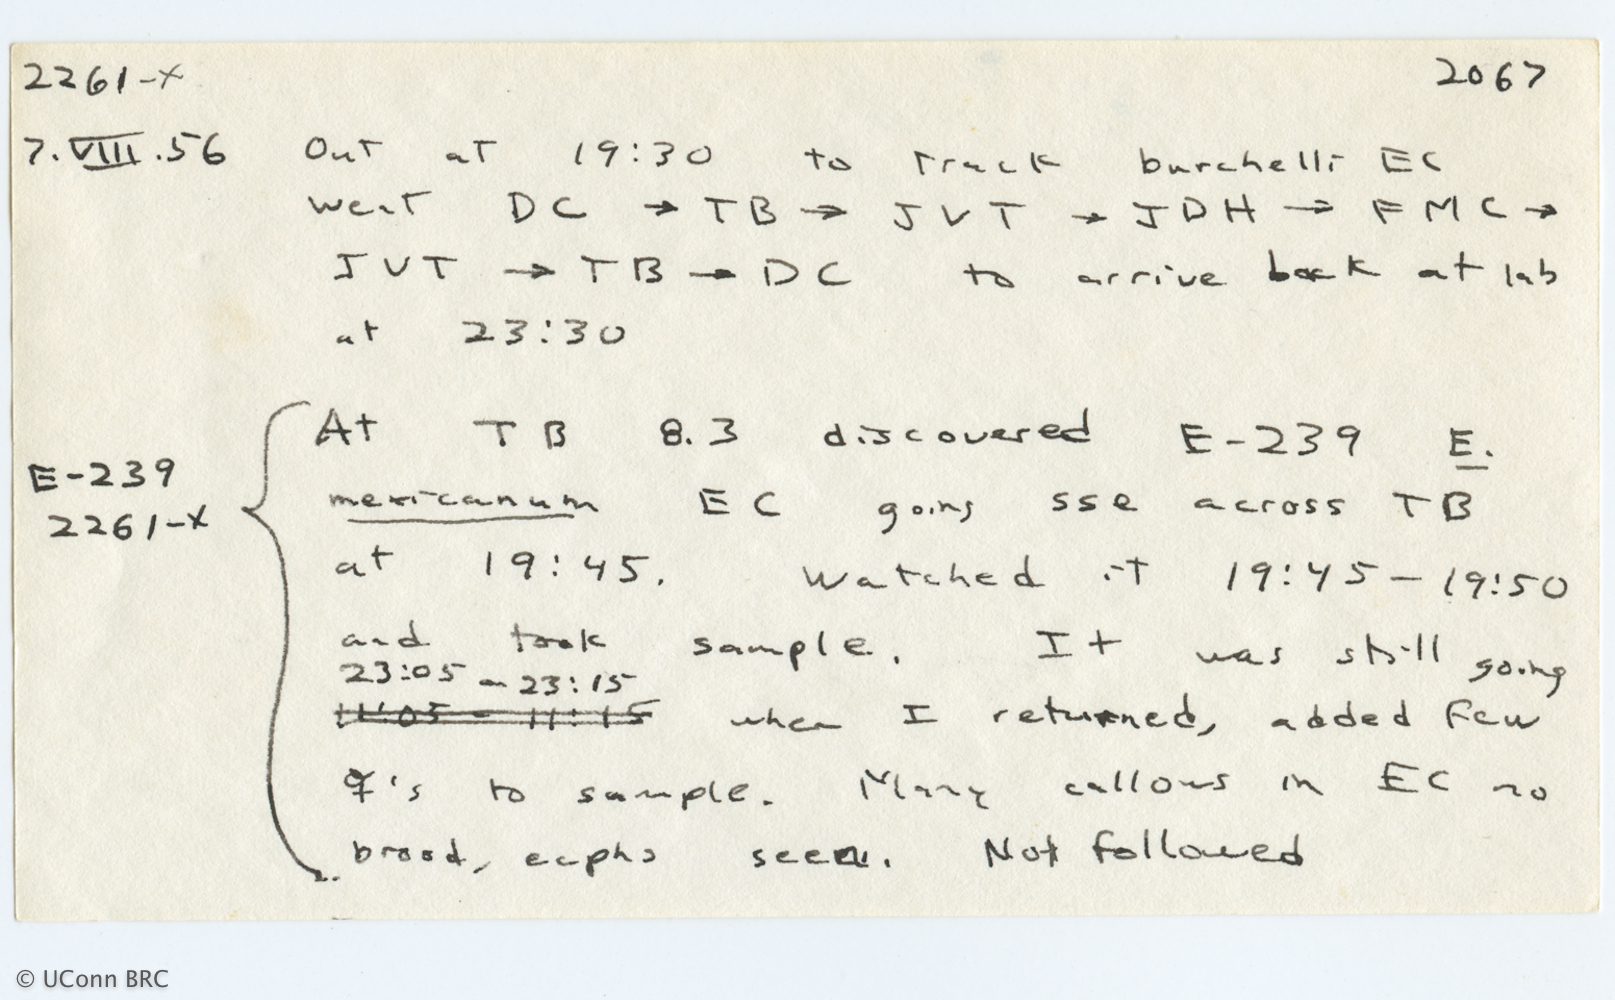 2261-x 2067
7.VIII.56 Out at 19:30 to track burchelli EC
went DC → TB → JVT → JDH → FMC →
JVT → TB → DC to arrive back at lab
at 23:30
At TB 8.3 discovered E-239 E.
E-239
mexicanum EC going sse across TB
2261-x
at 19:45. Watched it 19:45 – 19:50
and took sample. It was still going
23:05 – 23:15
11:05 – 11:15 when I returned, added few
☿'s to sample. Many callows in EC no
brood, ecphs seen. Not followed
© UConn BRC